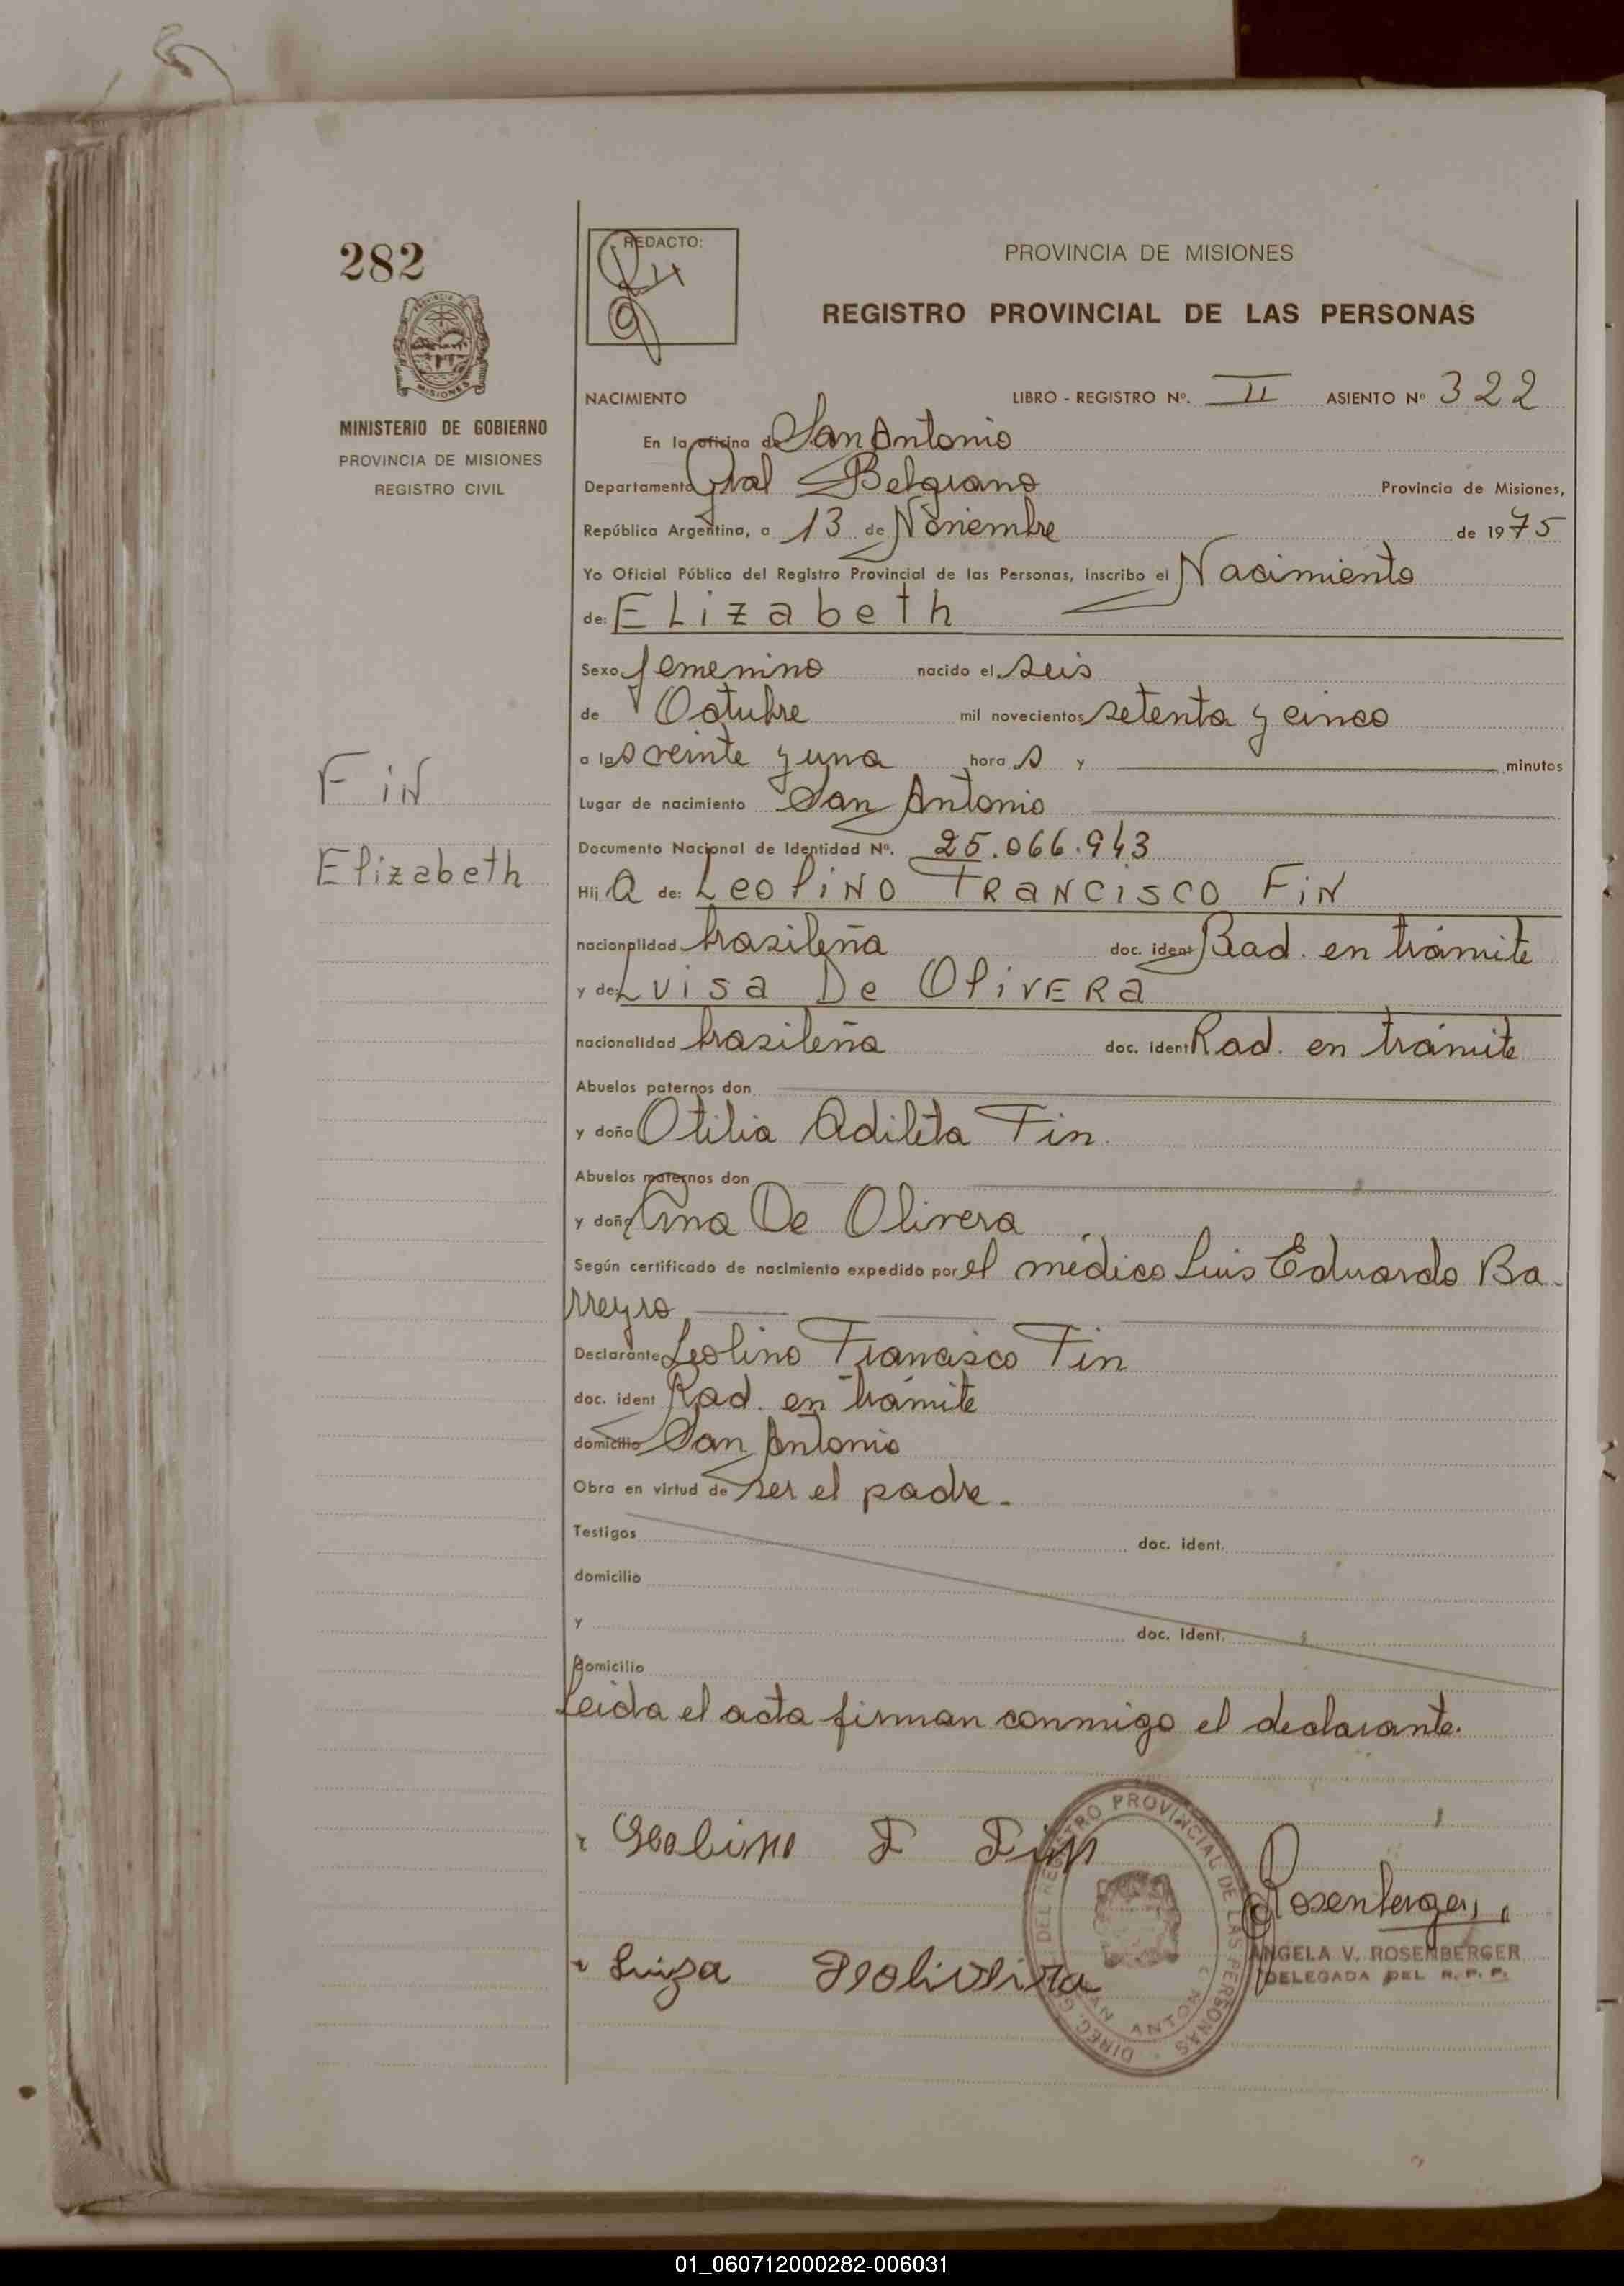 282
PROVINCIA DE
MISIONES
MINISTERIO DE GOBIERNO
PROVINCIA DE MISIONES
REGISTRO CIVIL
Fin
Elizabeth
REDACTO:
PROVINCIA DE MISIONES
REGISTRO PROVINCIAL DE LAS PERSONAS
NACIMIENTO LIBRO - REGISTRO Nº. II ASIENTO Nº 322
En la oficina de San Antonio
Departamento Gral Belgrano Provincia de Misiones,
República Argentina, a 13 de Noviembre de 1975
Yo Oficial Público del Registro Provincial de las Personas, inscribo el Nacimiento
de: Elizabeth
Sexo femenino nacido el seis
de Octubre mil novecientos setenta y cinco
a las veinte y una hora s y minutos
Lugar de nacimiento San Antonio
Documento Nacional de Identidad Nº. 25.066.943
Hij a de: Leolino Francisco Fin
nacionalidad brasileña doc. ident Rad. en trámite
y de: Luisa De Olivera
nacionalidad brasileña doc. ident Rad. en trámite
Abuelos paternos don
y doña Otilia Adileta Fin.
Abuelos maternos don
y doña Ana De Olivera
Según certificado de nacimiento expedido por el médico Luis Eduardo Ba-
rreyro
Declarante Leolino Francisco Fin
doc. ident Rad. en trámite
domicilio San Antonio
Obra en virtud de ser el padre.
Testigos doc. ident.
domicilio
y doc. ident.
domicilio
Leida el acta firman conmigo el declarante.
Leolino F Fin
Luiza Deoliveira
DIREC. G DEL REGISTRO PROVINCIAL DE LAS PERSONAS
SAN ANTONIO
Rosenberger
ANGELA V. ROSENBERGER
DELEGADA DEL R. P. P.
01_060712000282-006031